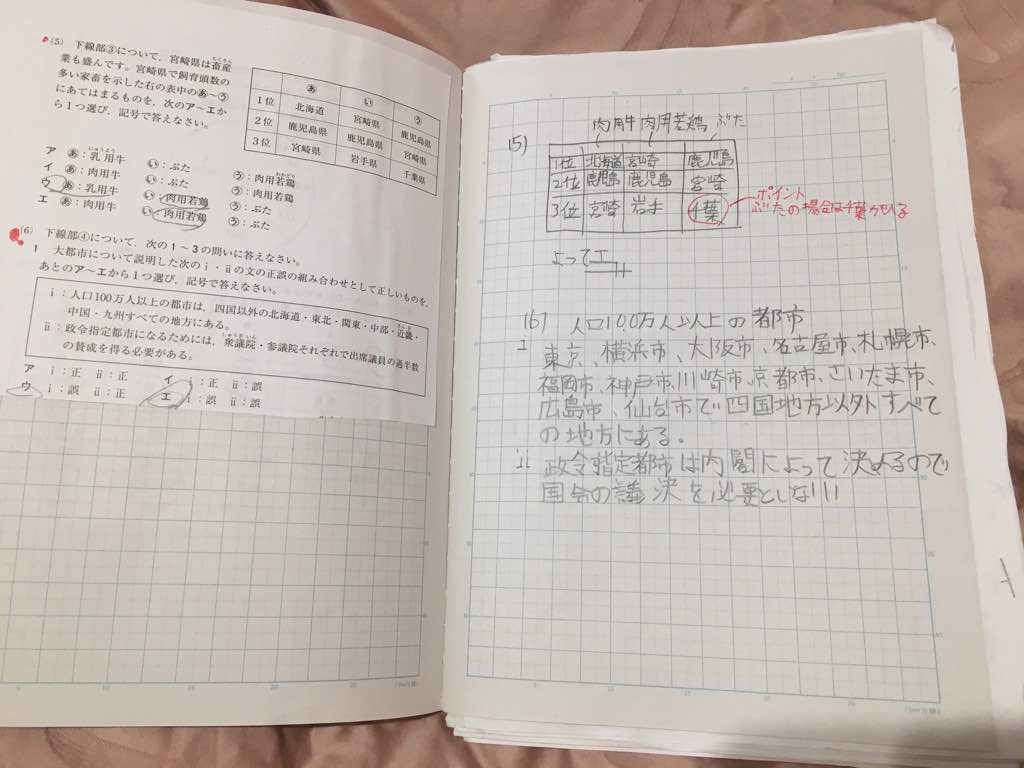 (5) 下線部③について，宮崎県は畜産
業も盛んです。宮崎県で飼育頭数の
多い家畜を示した右の表中のあ～う
にあてはまるものを，次のア～エか
ら1つ選び，記号で答えなさい。
あ い う
1位 北海道 宮崎県 鹿児島県
2位 鹿児島県 鹿児島県 宮崎県
3位 宮崎県 岩手県 千葉県
ア あ：乳用牛 い：ぶた う：肉用若鶏
イ あ：肉用牛 い：ぶた う：肉用若鶏
ウ あ：乳用牛 い：肉用若鶏 う：ぶた
エ あ：肉用牛 い：肉用若鶏 う：ぶた
(6) 下線部④について，次の1～3の問いに答えなさい。
1 大都市について説明した次のⅰ・ⅱの文の正誤の組み合わせとして正しいものを，
あとのア～エから1つ選び，記号で答えなさい。
ⅰ：人口100万人以上の都市は，四国以外の北海道・東北・関東・中部・近畿・
中国・九州すべての地方にある。
ⅱ：政令指定都市になるためには，衆議院・参議院それぞれで出席議員の過半数
の賛成を得る必要がある。
ア ⅰ：正 ⅱ：正 イ ⅰ：正 ⅱ：誤
ウ ⅰ：誤 ⅱ：正 エ ⅰ：誤 ⅱ：誤
肉用牛 肉用若鶏 ぶた
(5)
1位 北海道 宮崎 鹿児島
2位 鹿児島 鹿児島 宮崎
3位 宮崎 岩手 千葉
ポイント
ぶたの場合は千葉が
よってエ
(6) 人口100万人以上の都市
ⅰ 東京、横浜市、大阪市、名古屋市、札幌市、
福岡市、神戸市、川崎市、京都市、さいたま市、
広島市、仙台市で四国地方以外すべて
の地方にある。
ⅱ 政令指定都市は内閣によって決めるので
国会の議決を必要としない